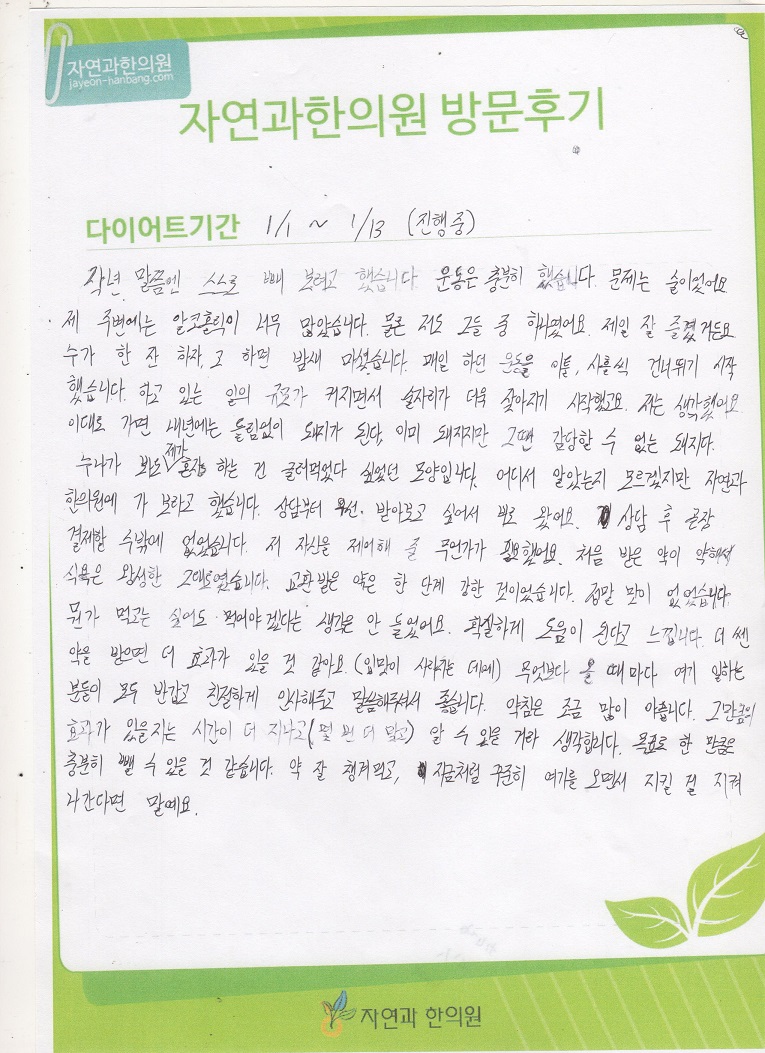 자연과한의원
jayeon-hanbang.com
자연과한의원 방문후기
다이어트기간 1/1 ~ 1/13 (진행중)
작년 말쯤엔 스스로 빼 보려고 했습니다. 운동은 충분히 했습니다. 문제는 술이었어요
제 주변에는 알코홀릭이 너무 많았습니다. 물론 저도 그들 중 하나였어요. 제일 잘 즐겼거든요
누가 한 잔 하자, 고 하면 밤새 마셨습니다. 매일 하던 운동을 이틀, 사흘씩 건너뛰기 시작
했습니다. 하고 있는 일의 규모가 커지면서 술자리가 더욱 잦아지기 시작했고요. 저는 생각했어요.
이대로 가면 내년에는 틀림없이 돼지가 된다, 이미 돼지지만 그땐 감당할 수 없는 돼지다.
누나가 봐도 제가 혼자 하는 건 글러먹었다 싶었던 모양입니다. 어디서 알았는지 모르겠지만 자연과
한의원에 가 보라고 했습니다. 상담부터 우선 받아보고 싶어서 바로 왔어요. 상담 후 곧장
결제할 수밖에 없었습니다. 저 자신을 제어해 줄 무언가가 필요했어요. 처음 받은 약이 약해서
식욕은 왕성한 그대로였습니다. 교환받은 약은 한 단계 강한 것이었습니다. 정말 맛이 없었습니다.
뭔가 먹고는 싶어도 먹어야겠다는 생각은 안 들었어요. 확실하게 도움이 된다고 느낍니다. 더 쎈
약을 받으면 더 효과가 있을 것 같아요. (입맛이 사라지는 데에) 무엇보다 올 때마다 여기 일하는
분들이 모두 반갑고 친절하게 인사해주고 말씀해주셔서 좋습니다. 약침은 조금 많이 아픕니다. 그만큼의
효과가 있을지는 시간이 더 지나고(몇 번 더 맞고) 알 수 있을 거라 생각합니다. 목표로 한 만큼은
충분히 뺄 수 있을 것 같습니다. 약 잘 챙겨먹고, 지금처럼 꾸준히 여기를 오면서 지킬 걸 지켜
나간다면 말예요.
자연과 한의원